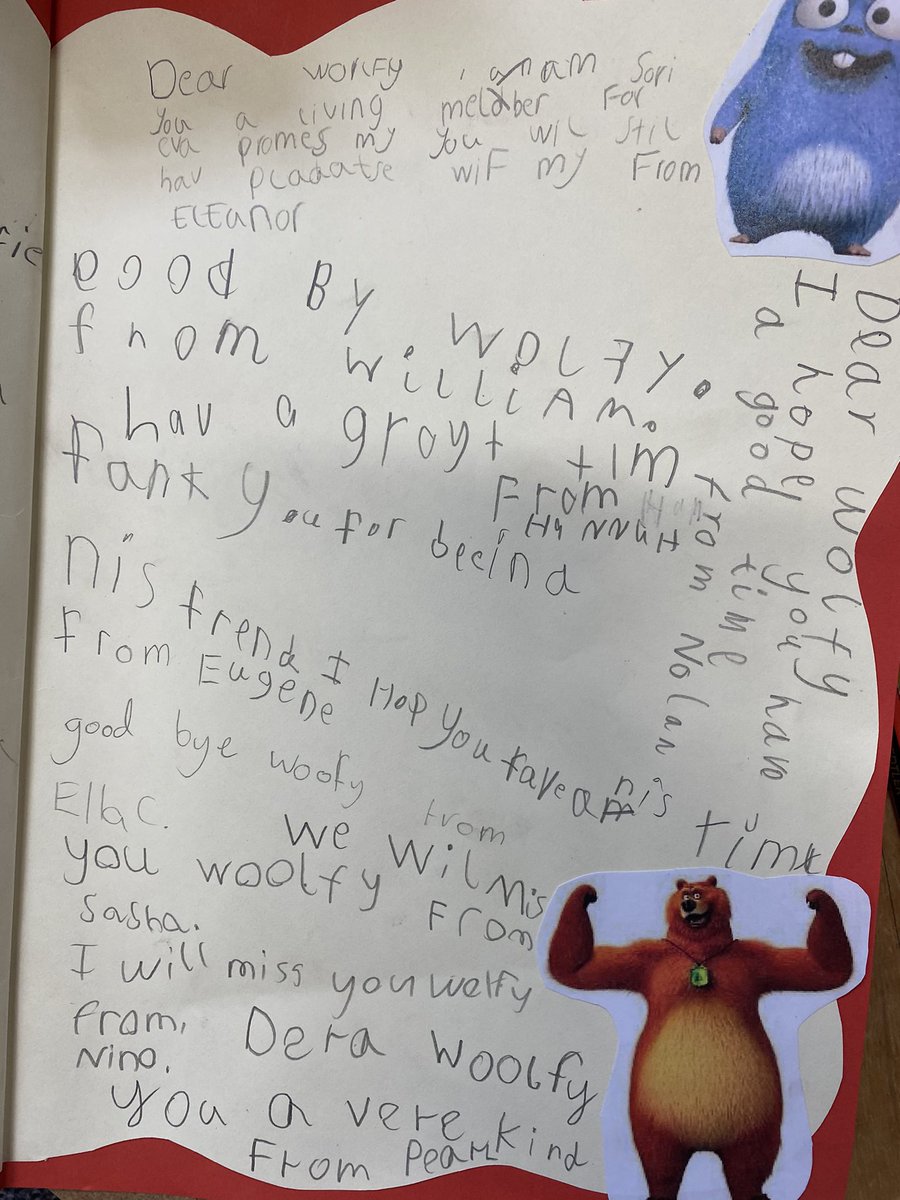 Dear worlfy i am Sori
you a living meldber For
eva promes my you wil stil
hav plaaatse wif my From
ELEanor
good By WOLFY.
from williAm.
hav a grayt tim
From HANNAH
fank you for beeind
nis frend I Hop you fave a nis time
From Eugene
good bye woofy from
Ella C.
We Wil Mis
you woolfy From
Sasha.
I will miss you welfy
from,
Nino.
Dera woolfy
you a vere kind
From Pearl
Dear wolfy
I hope you han
a good time
from Nolan